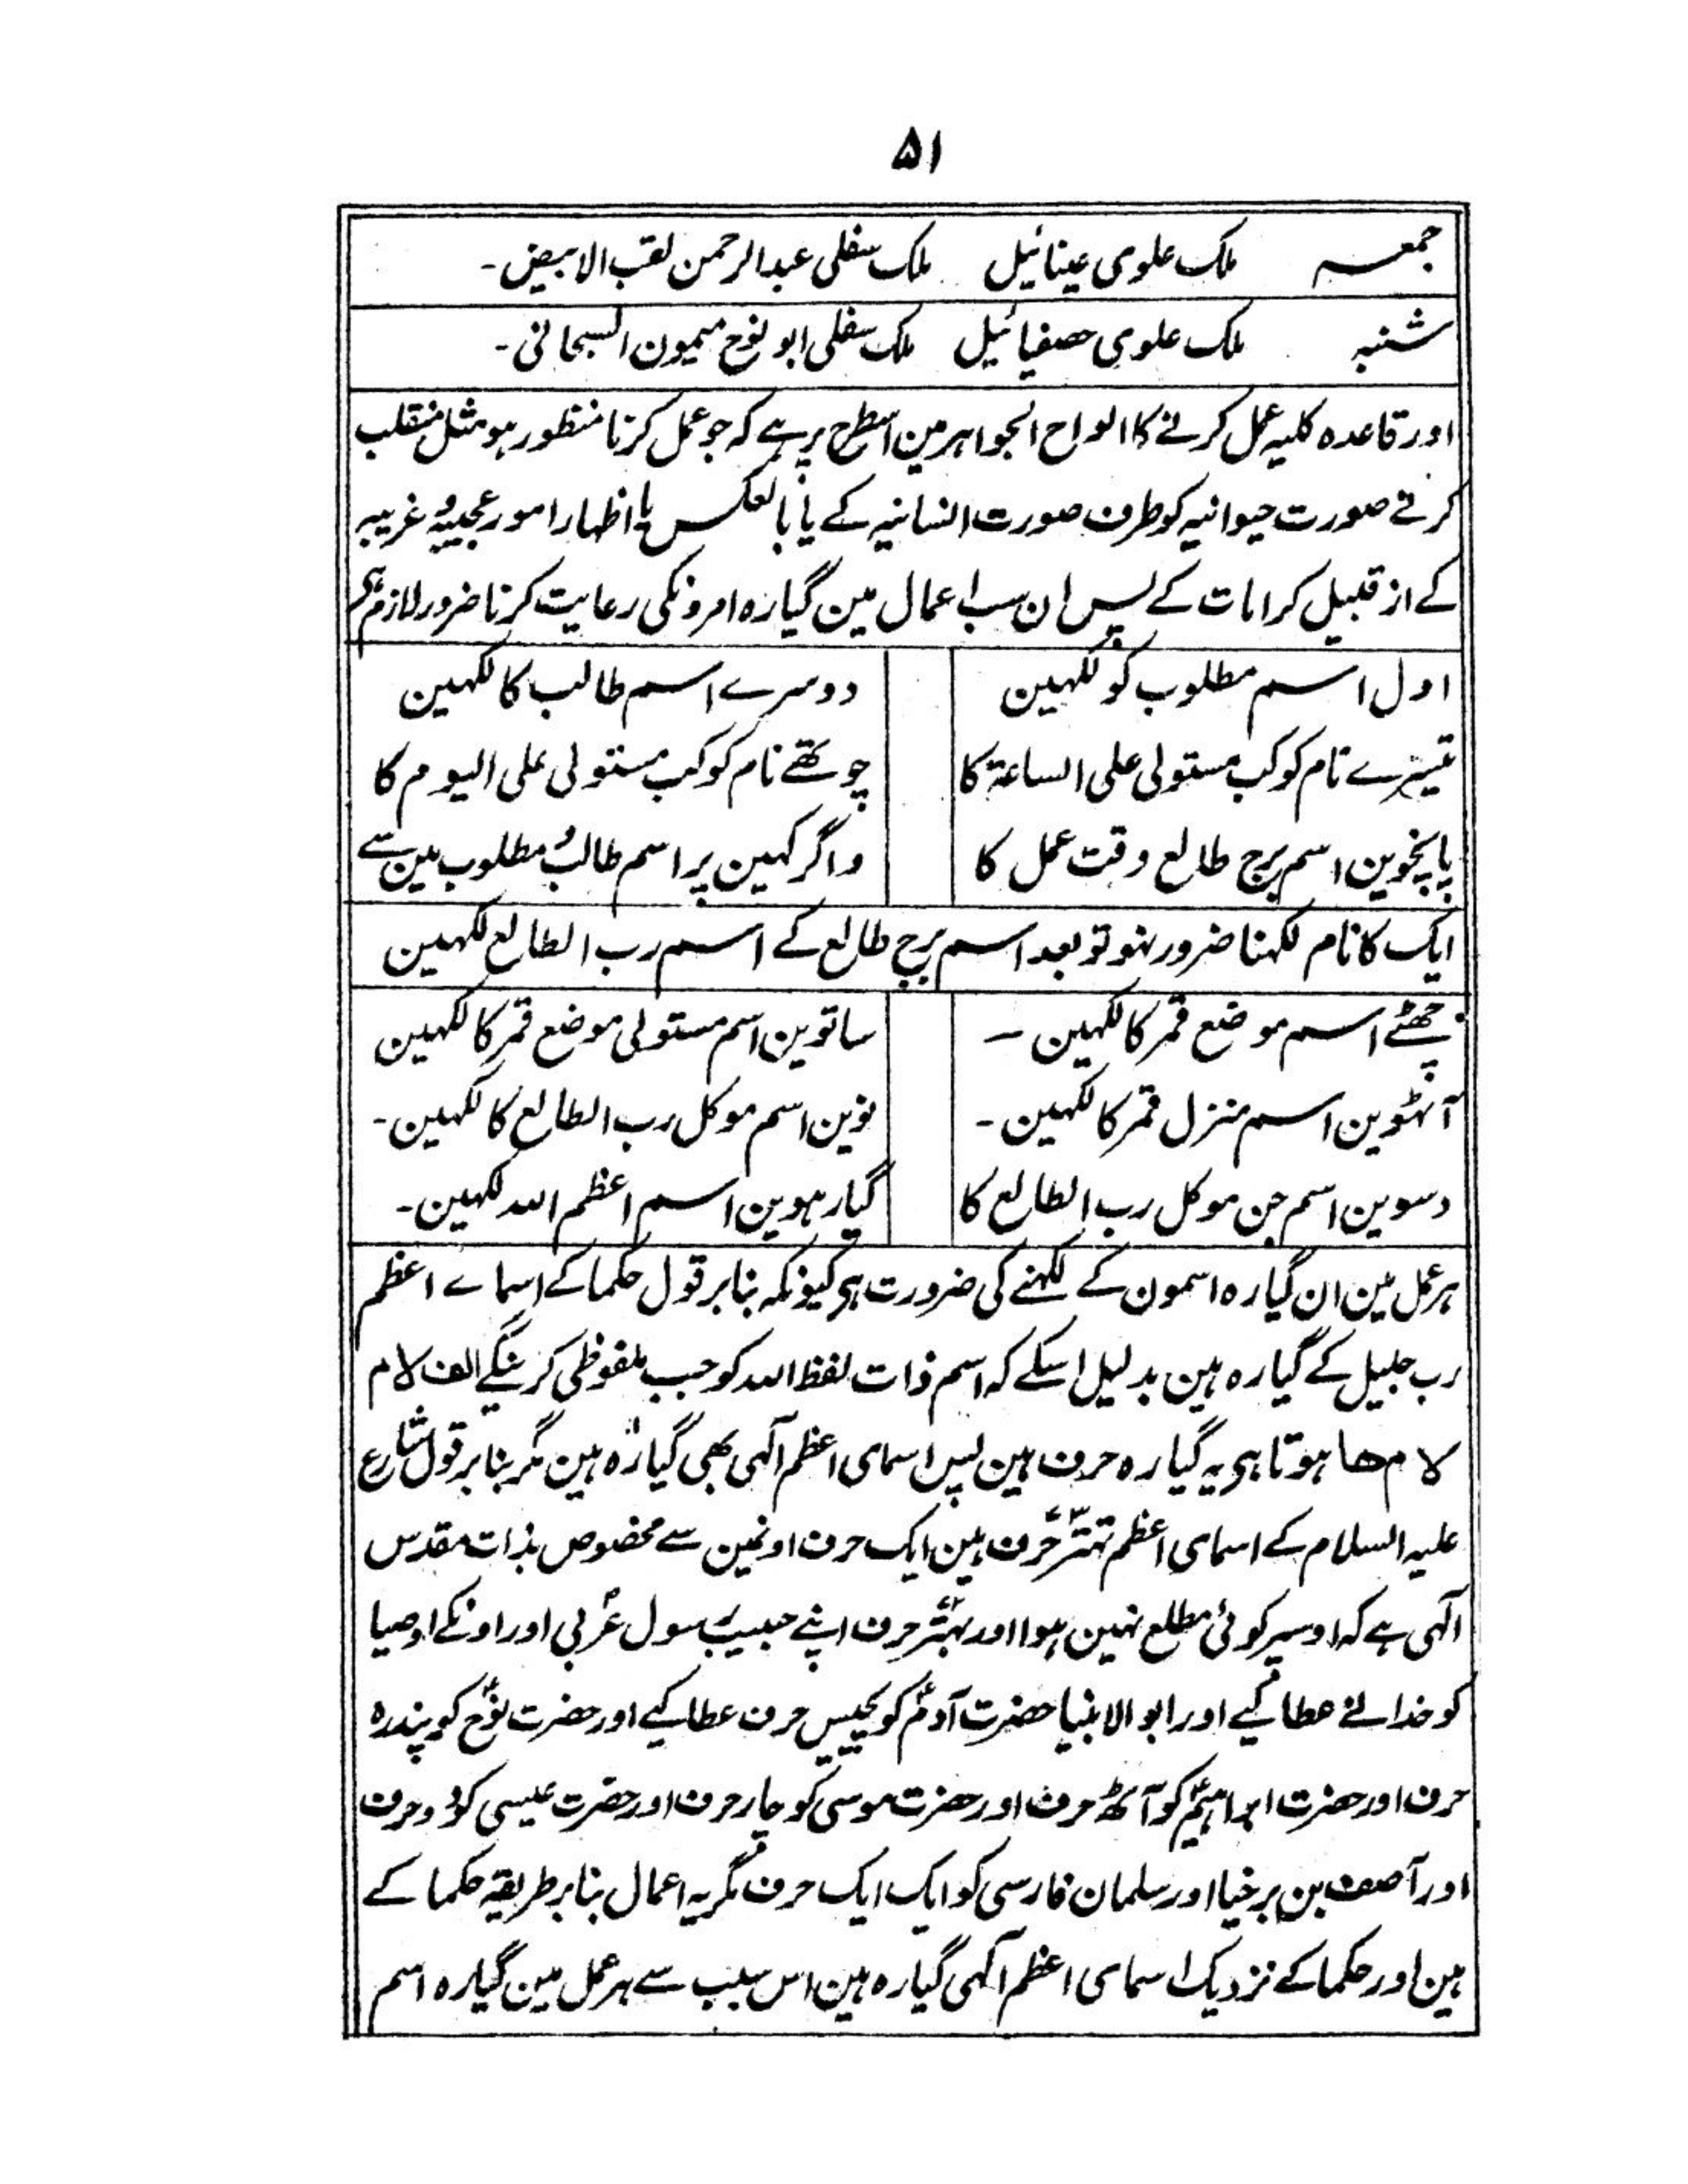 ۵۱
جمعہ ملک علوی عینائیل ملک سفلی عبدالرحمن لقب الابیض۔
شنبہ ملک علوی حصفیائیل ملک سفلی ابو نوح میمون السبحانی۔
اور قاعدہ کلیہ عمل کرنے کا الواح الجواہر مین اسطرح پر ہے کہ جو عمل کرنا منظور ہو مثل منقلب
کرنے صورت حیوانیہ کو طرف صورت انسانیہ کے یا بالعکس یا اظہار امور عجیبہ و غریبہ
کے از قبیل کرامات کے پس ان سب اعمال مین گیارہ امرونکی رعایت کرنا ضرور لازم ہی
اول اسم مطلوب کو لکھین
دوسرے اسم طالب کا لکھین
تیسرے نام کوکب مستولی علی الساعۃ کا
چوتھے نام کوکب مستولی علی الیوم کا
پانچوین اسم برج طالع وقت عمل کا
و اگر کہین پر اسم طالب و مطلوب مین سے
ایک کا نام لکہنا ضرور نہو تو بعد اسم برج طالع کے اسم رب الطالع لکہین
چھٹے اسم موضع قمر کا لکھین ۔
ساتوین اسم مستولی موضع قمر کا لکھین
آٹھوین اسم منزل قمر کا لکھین ۔
نوین اسم موکل رب الطالع کا لکھین۔
دسوین اسم جن موکل رب الطالع کا
گیارہوین اسم اعظم اللہ لکھین۔
ہر عمل مین ان گیارہ اسمون کے لکہنے کی ضرورت ہی کیونکہ بنابر قول حکما کے اسماے اعظم
رب جلیل کے گیارہ ہین بدلیل اسکے کہ اسم ذات لفظ اللہ کو جب ملفوظی کرینگے الف لام
لام ھا ہوتا ہی یہ گیارہ حرف ہین پس اسمای اعظم آلہی بھی گیارہ ہین مگر بنابر قول شارع
علیہ السلام کے اسمای اعظم تہتر حرف ہین ایک حرف اونمین سے مخصوص بذات مقدس
آلہی ہے کہ اوسپر کوئی مطلع نہین ہوا اور بہتر حرف اپنے حبیب رسول عربی اور اونکے اوصیا
کو خدا نے عطا کیے اور ابو الانبیا حضرت آدمؑ کو پچیس حرف عطا کیے اور حضرت نوحؑ کو پندرہ
حرف اور حضرت ابراہیمؑ کو آٹھ حرف اور حضرت موسی کو چار حرف اور حضرت عیسی کو دو حرف
اور آصف بن برخیا اور سلمان فارسی کو ایک ایک حرف مگر یہ اعمال بنابر طریقہ حکما کے
ہین اور حکما کے نزدیک اسمای اعظم آلہی گیارہ ہین اس سبب سے ہر عمل مین گیارہ اسم